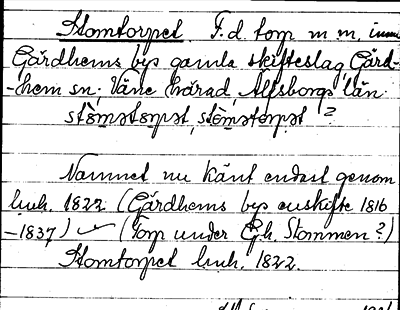 Stomtorpet. F. d. torp m. m. inom
Gärdhems bys gamla skifteslag, Gärd-
-hem sn; Väne härad, Älfsborgs län.
stōmstorpət, stōmətorpət ?
Namnet nu känt endast genom
husk. 1822. (Gärdhems bys enskifte 1816
-1837) (Torp under Egh. Stommen?)
Stomtorpet husk. 1822.